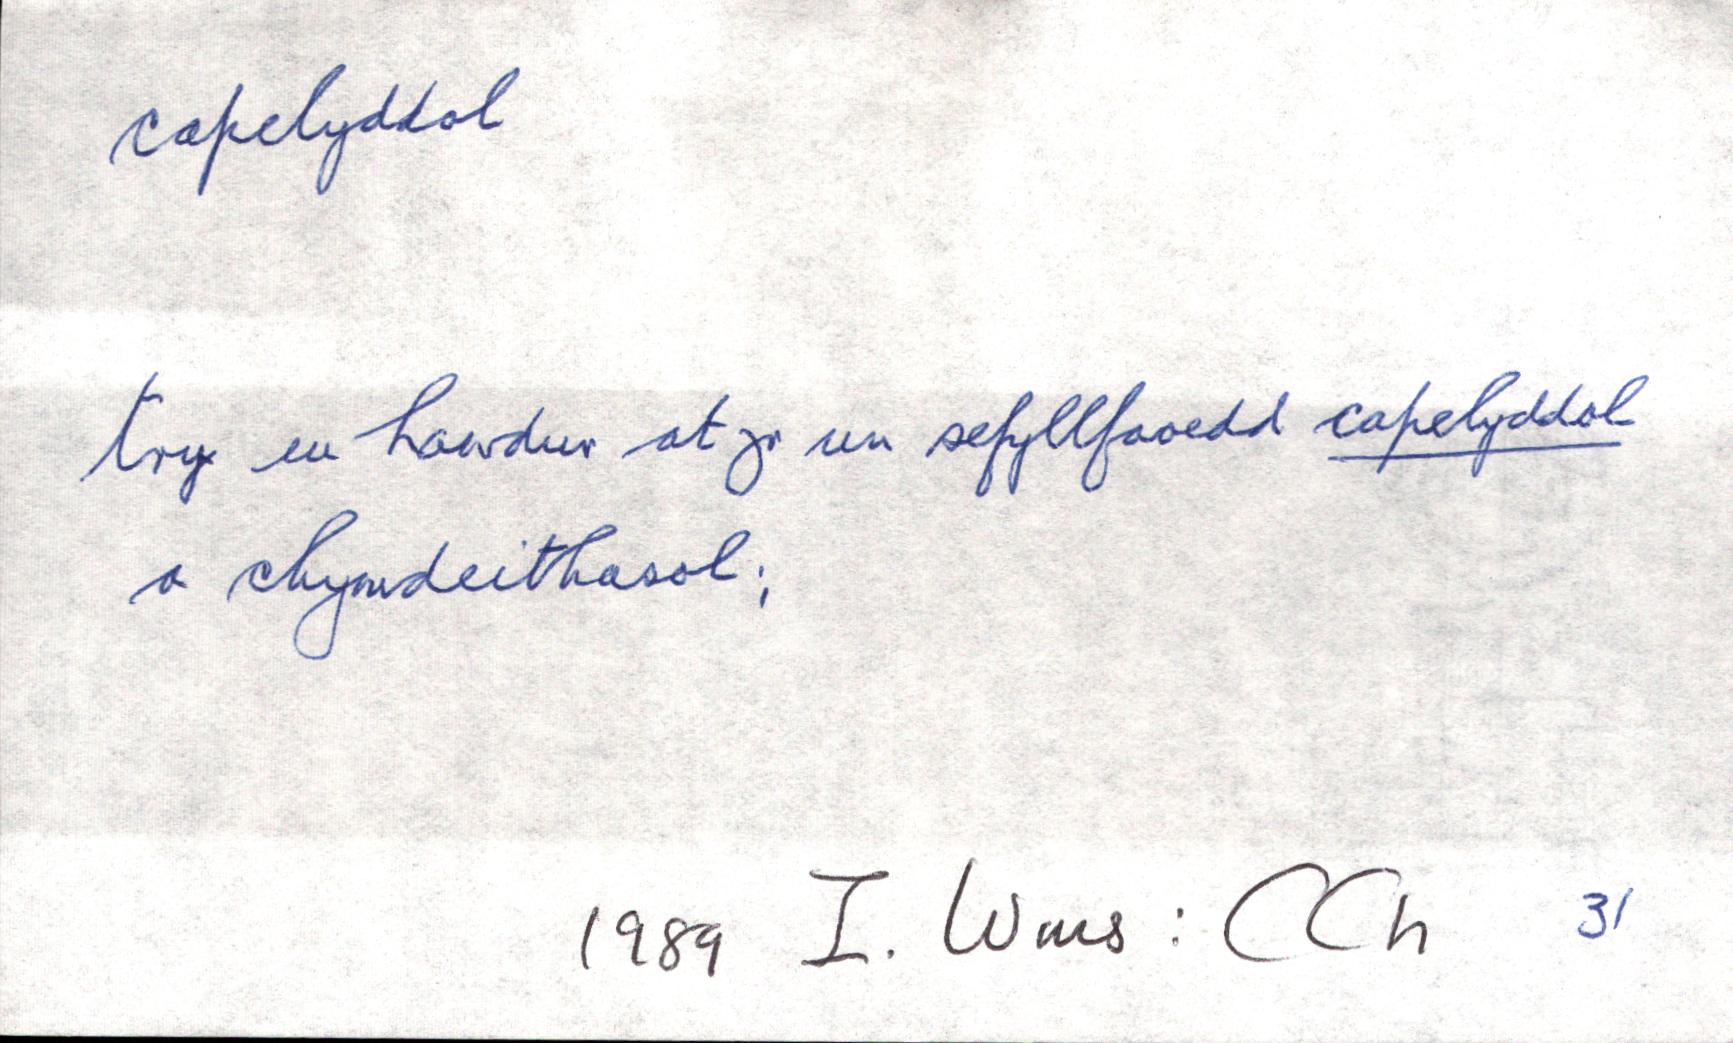 capelyddol
try eu hawdur at yr un sefyllfaoedd capelyddol
a chymdeithasol;
1989 I. Wms: CCh 31